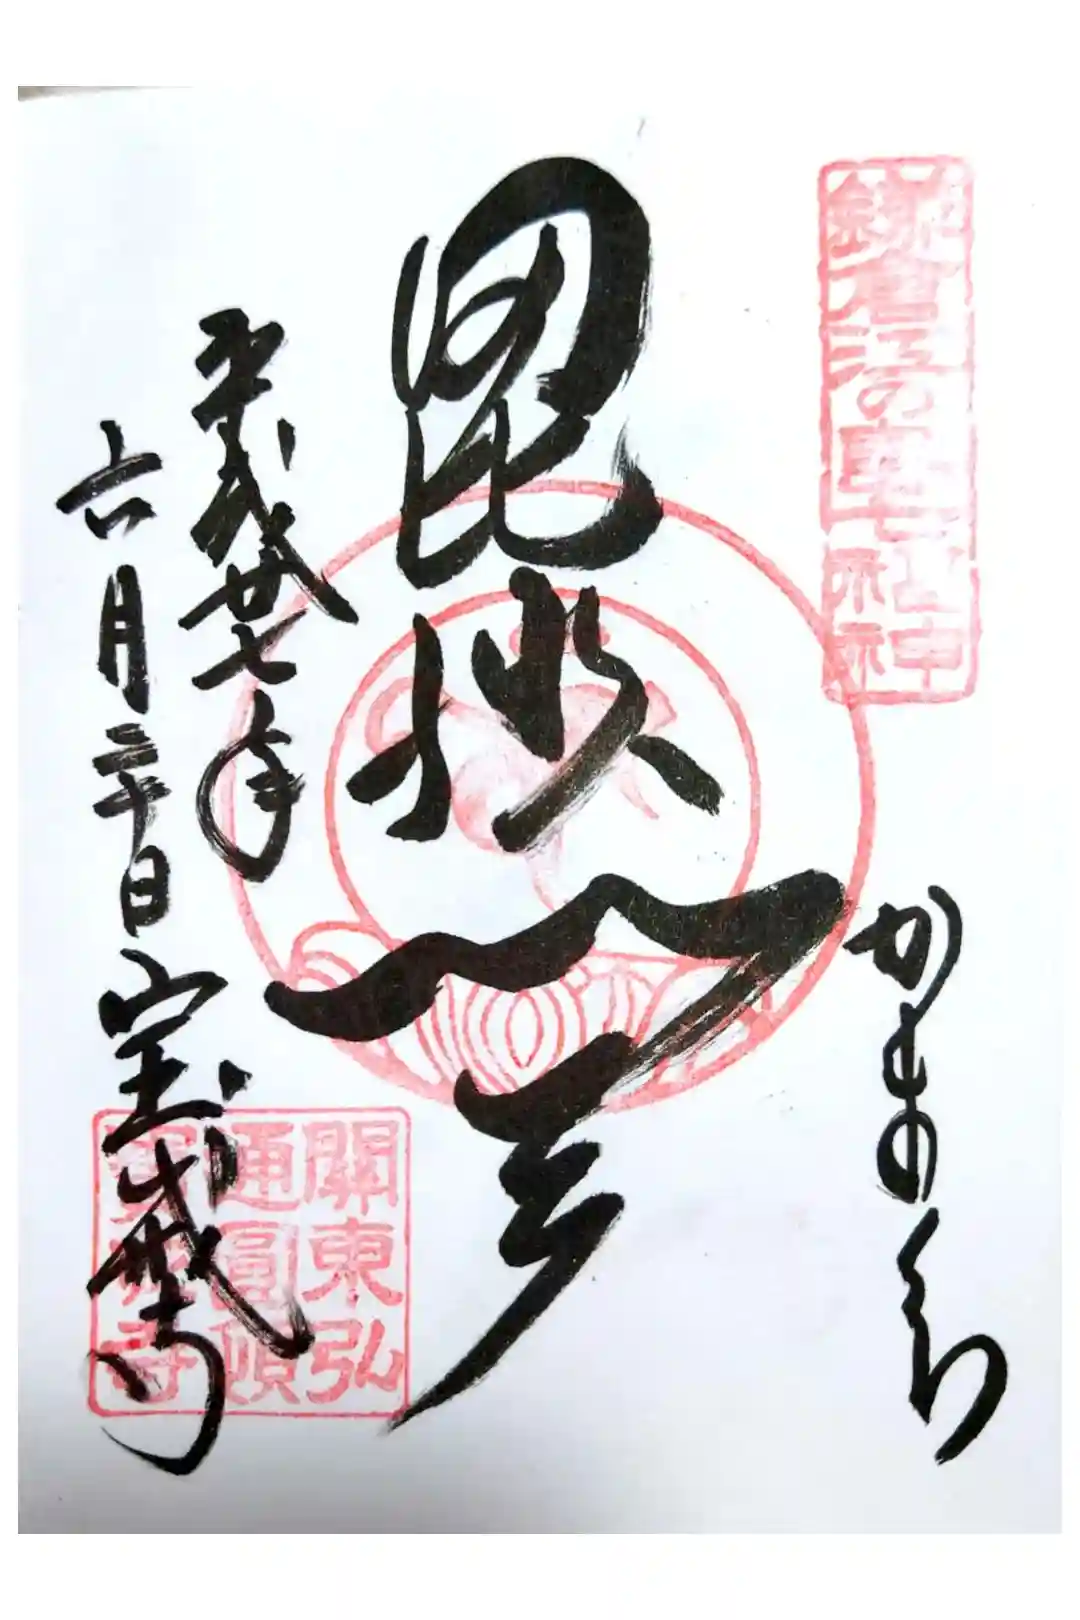 鎌倉江の島七福神
かまくら
毘沙門天
平成廿七年
六月 日 宝戒寺
關東弘
通圓頓
寶戒寺